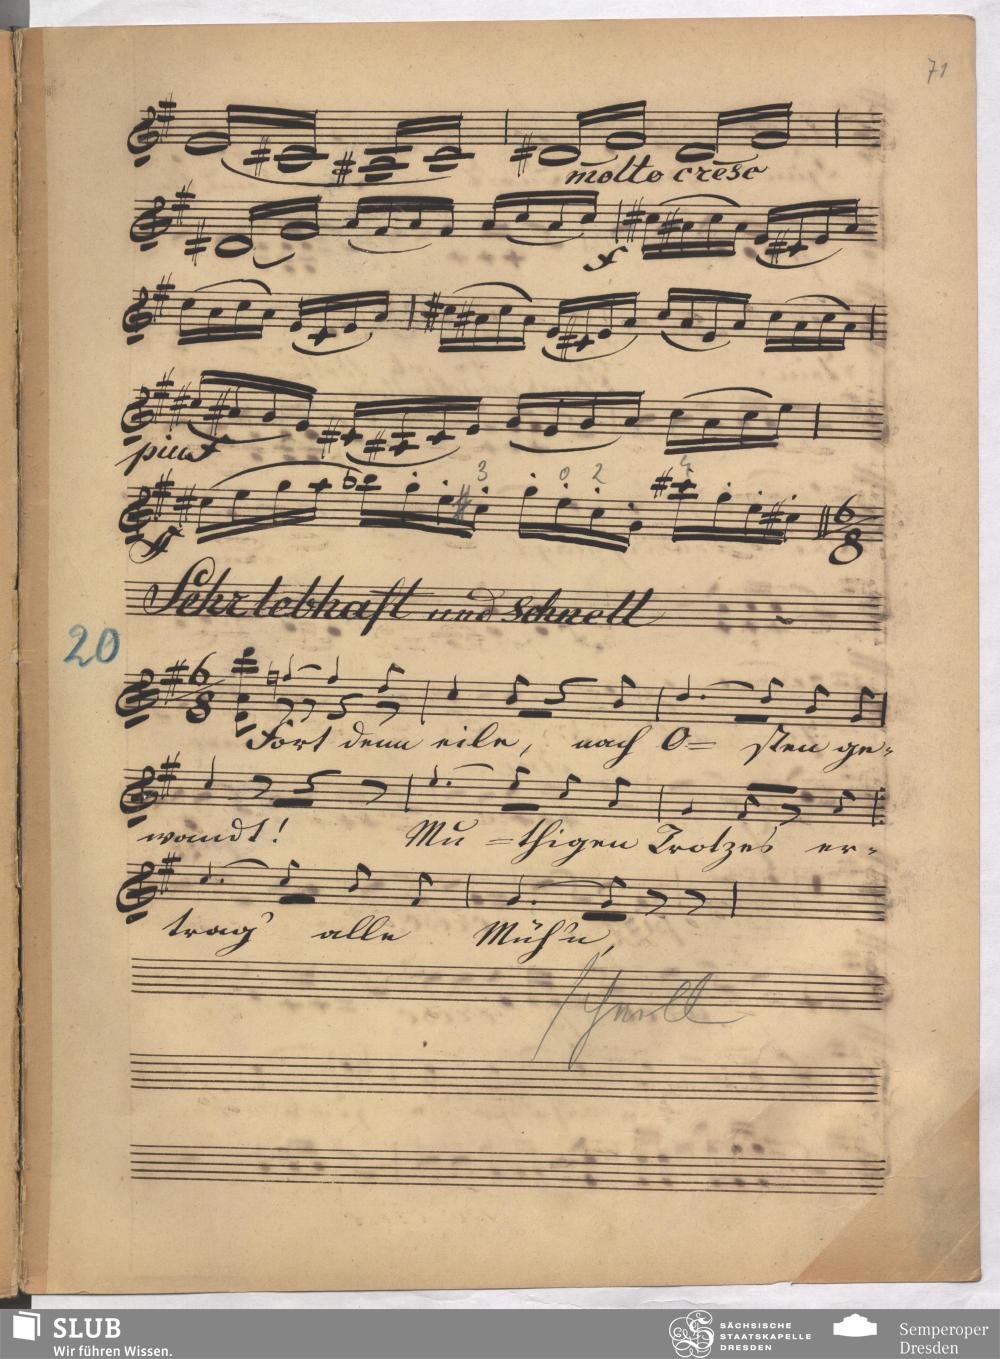 71
molto cresc
f
piu f
3 0 2 4
ff
6 8
Sehr lebhaft und schnell
20
6 8
Fort denn eile, nach O= sten ge-
wandt! Mu =thigen Trotzes er-
trag' alle Müh'n,
schnell
SLUB
Wir führen Wissen.
SÄCHSISCHE
STAATSKAPELLE
DRESDEN
Semperoper
Dresden